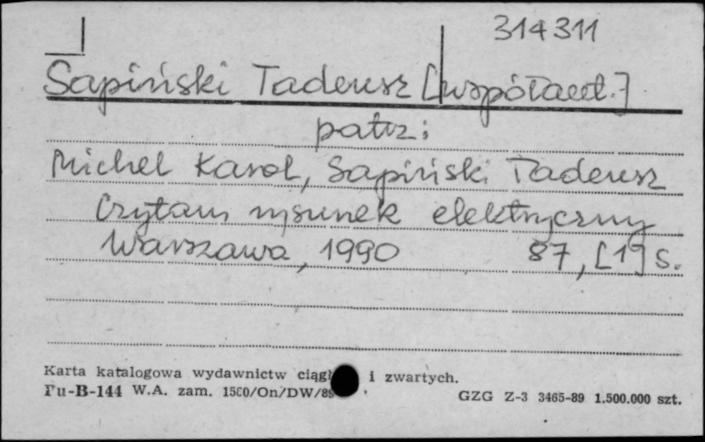 314311
Sapiński Tadeusz [współaut.]
patrz:
Michel Karol, Sapiński Tadeusz
Czytam rysunek elektryczny
Warszawa, 1990 87, [1] s.
Karta katalogowa wydawnictw i zwartych.
Pu-B-144 W.A. zam. 1500/On/DW/89
GZG Z-3 3465-89 1.500.000 szt.